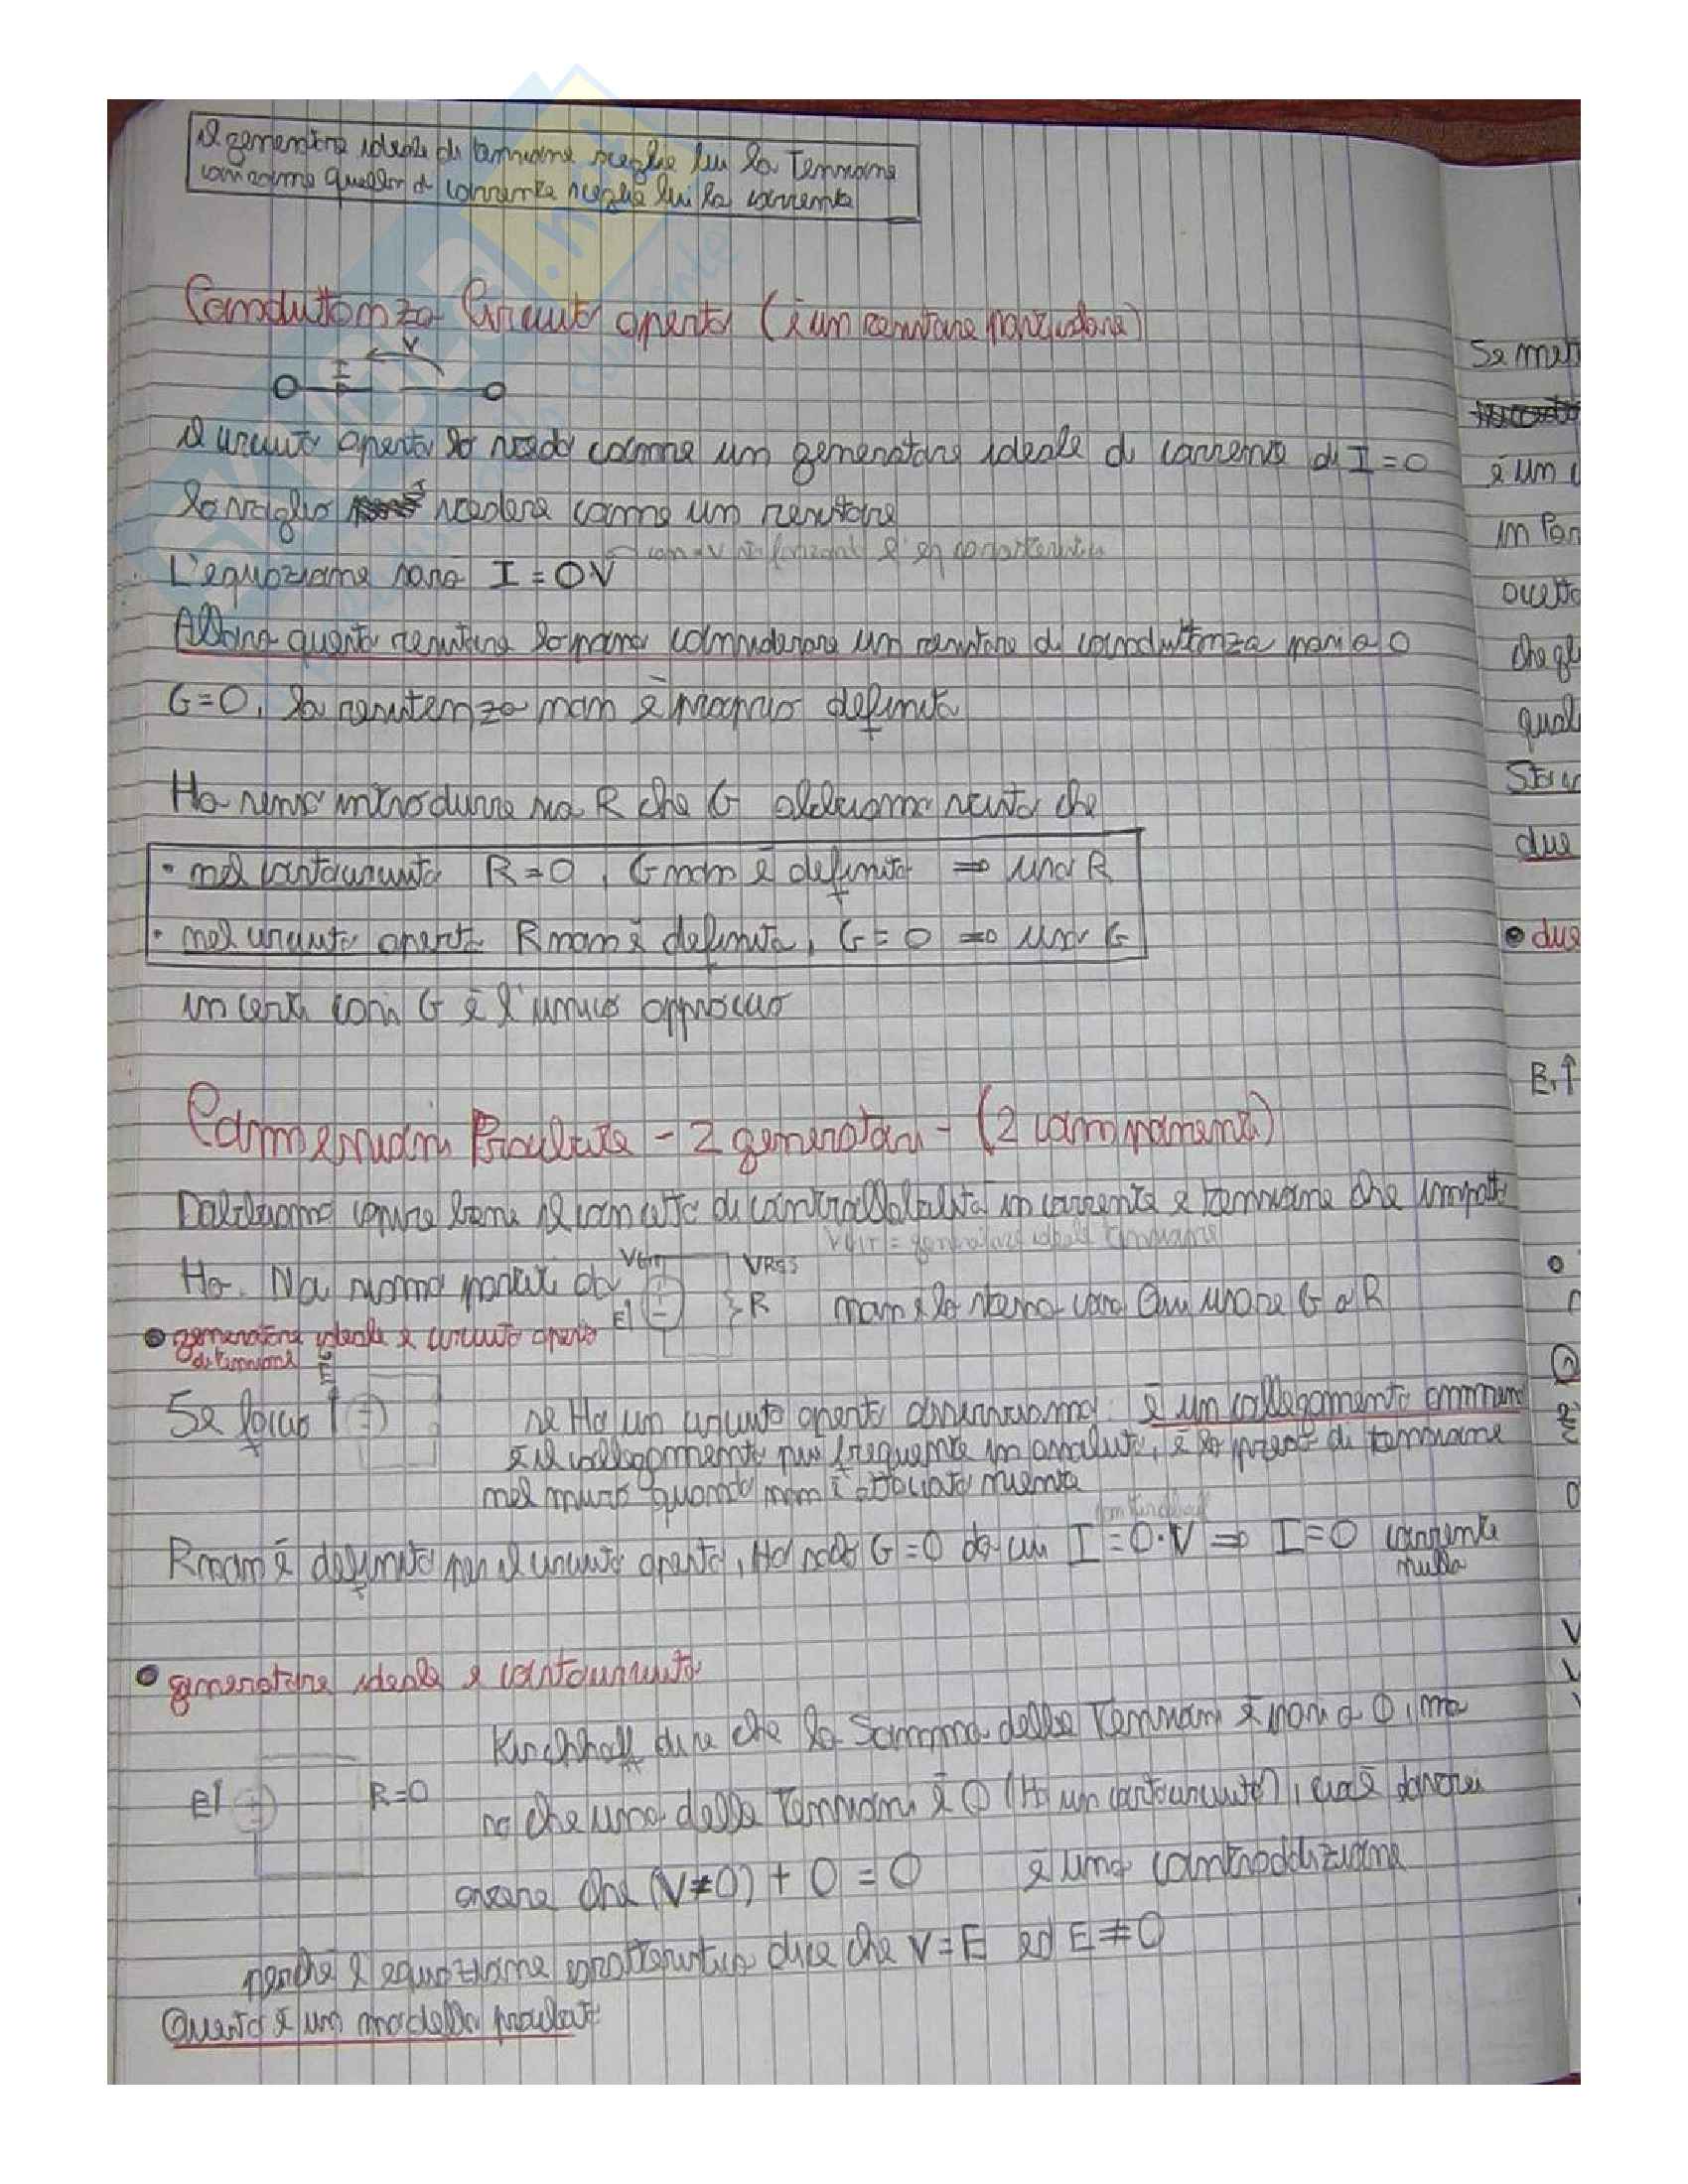 Il generatore ideale di tensione sceglie lui la Tensione
così come quello di corrente sceglie lui la corrente
Conduttanza Circuito aperto (è un resistore particolare)
V
I
Il circuito aperto lo vedo come un generatore ideale di corrente di I = 0
lo voglio vedere come un resistore
L'equazione sarà I = 0V
Allora questo resistore lo posso considerare un resistore di conduttanza pari a 0
G=0, la resistenza non è proprio definita
Ha senso introdurre sia R che G abbiamo visto che
• nel cortocircuito R=0, G non è definita ⇒ uso R
• nel circuito aperto R non è definita, G=0 ⇒ uso G
in certi casi G è l'unico approccio
Connessioni Proibite - 2 generatori - (2 componenti)
Dobbiamo capire bene il concetto di controllabilità in corrente e tensione che impatto
VGIT = generatore ideale tensione
Ha. Noi siamo partiti da
VGIT
VRES
E↑
R
non è la stessa cosa qui usare G o R
• generatore ideale e circuito aperto
di tensione
Se faccio
se Ho un circuito aperto osserviamo: è un collegamento ammesso
è il collegamento più frequente in assoluto, è la presa di tensione
nel muro quando non è attaccato niente
R non è definita per il circuito aperto, Ho solo G=0 da cui I=0·V ⇒ I=0 corrente
nulla
• generatore ideale e cortocircuito
Kirchhoff dice che la Somma delle Tensioni è pari a 0, ma
E↑
R=0
so che una delle Tensioni è 0 (Ho un cortocircuito), cioè dovrei
avere che (V≠0) + 0 = 0 è una contraddizione
perché l'equazione caratteristica dice che V=E ed E≠0
Questo è un modello proibito
Se met
è un c
in Par
che gl
qual
due
• due
E₁↑